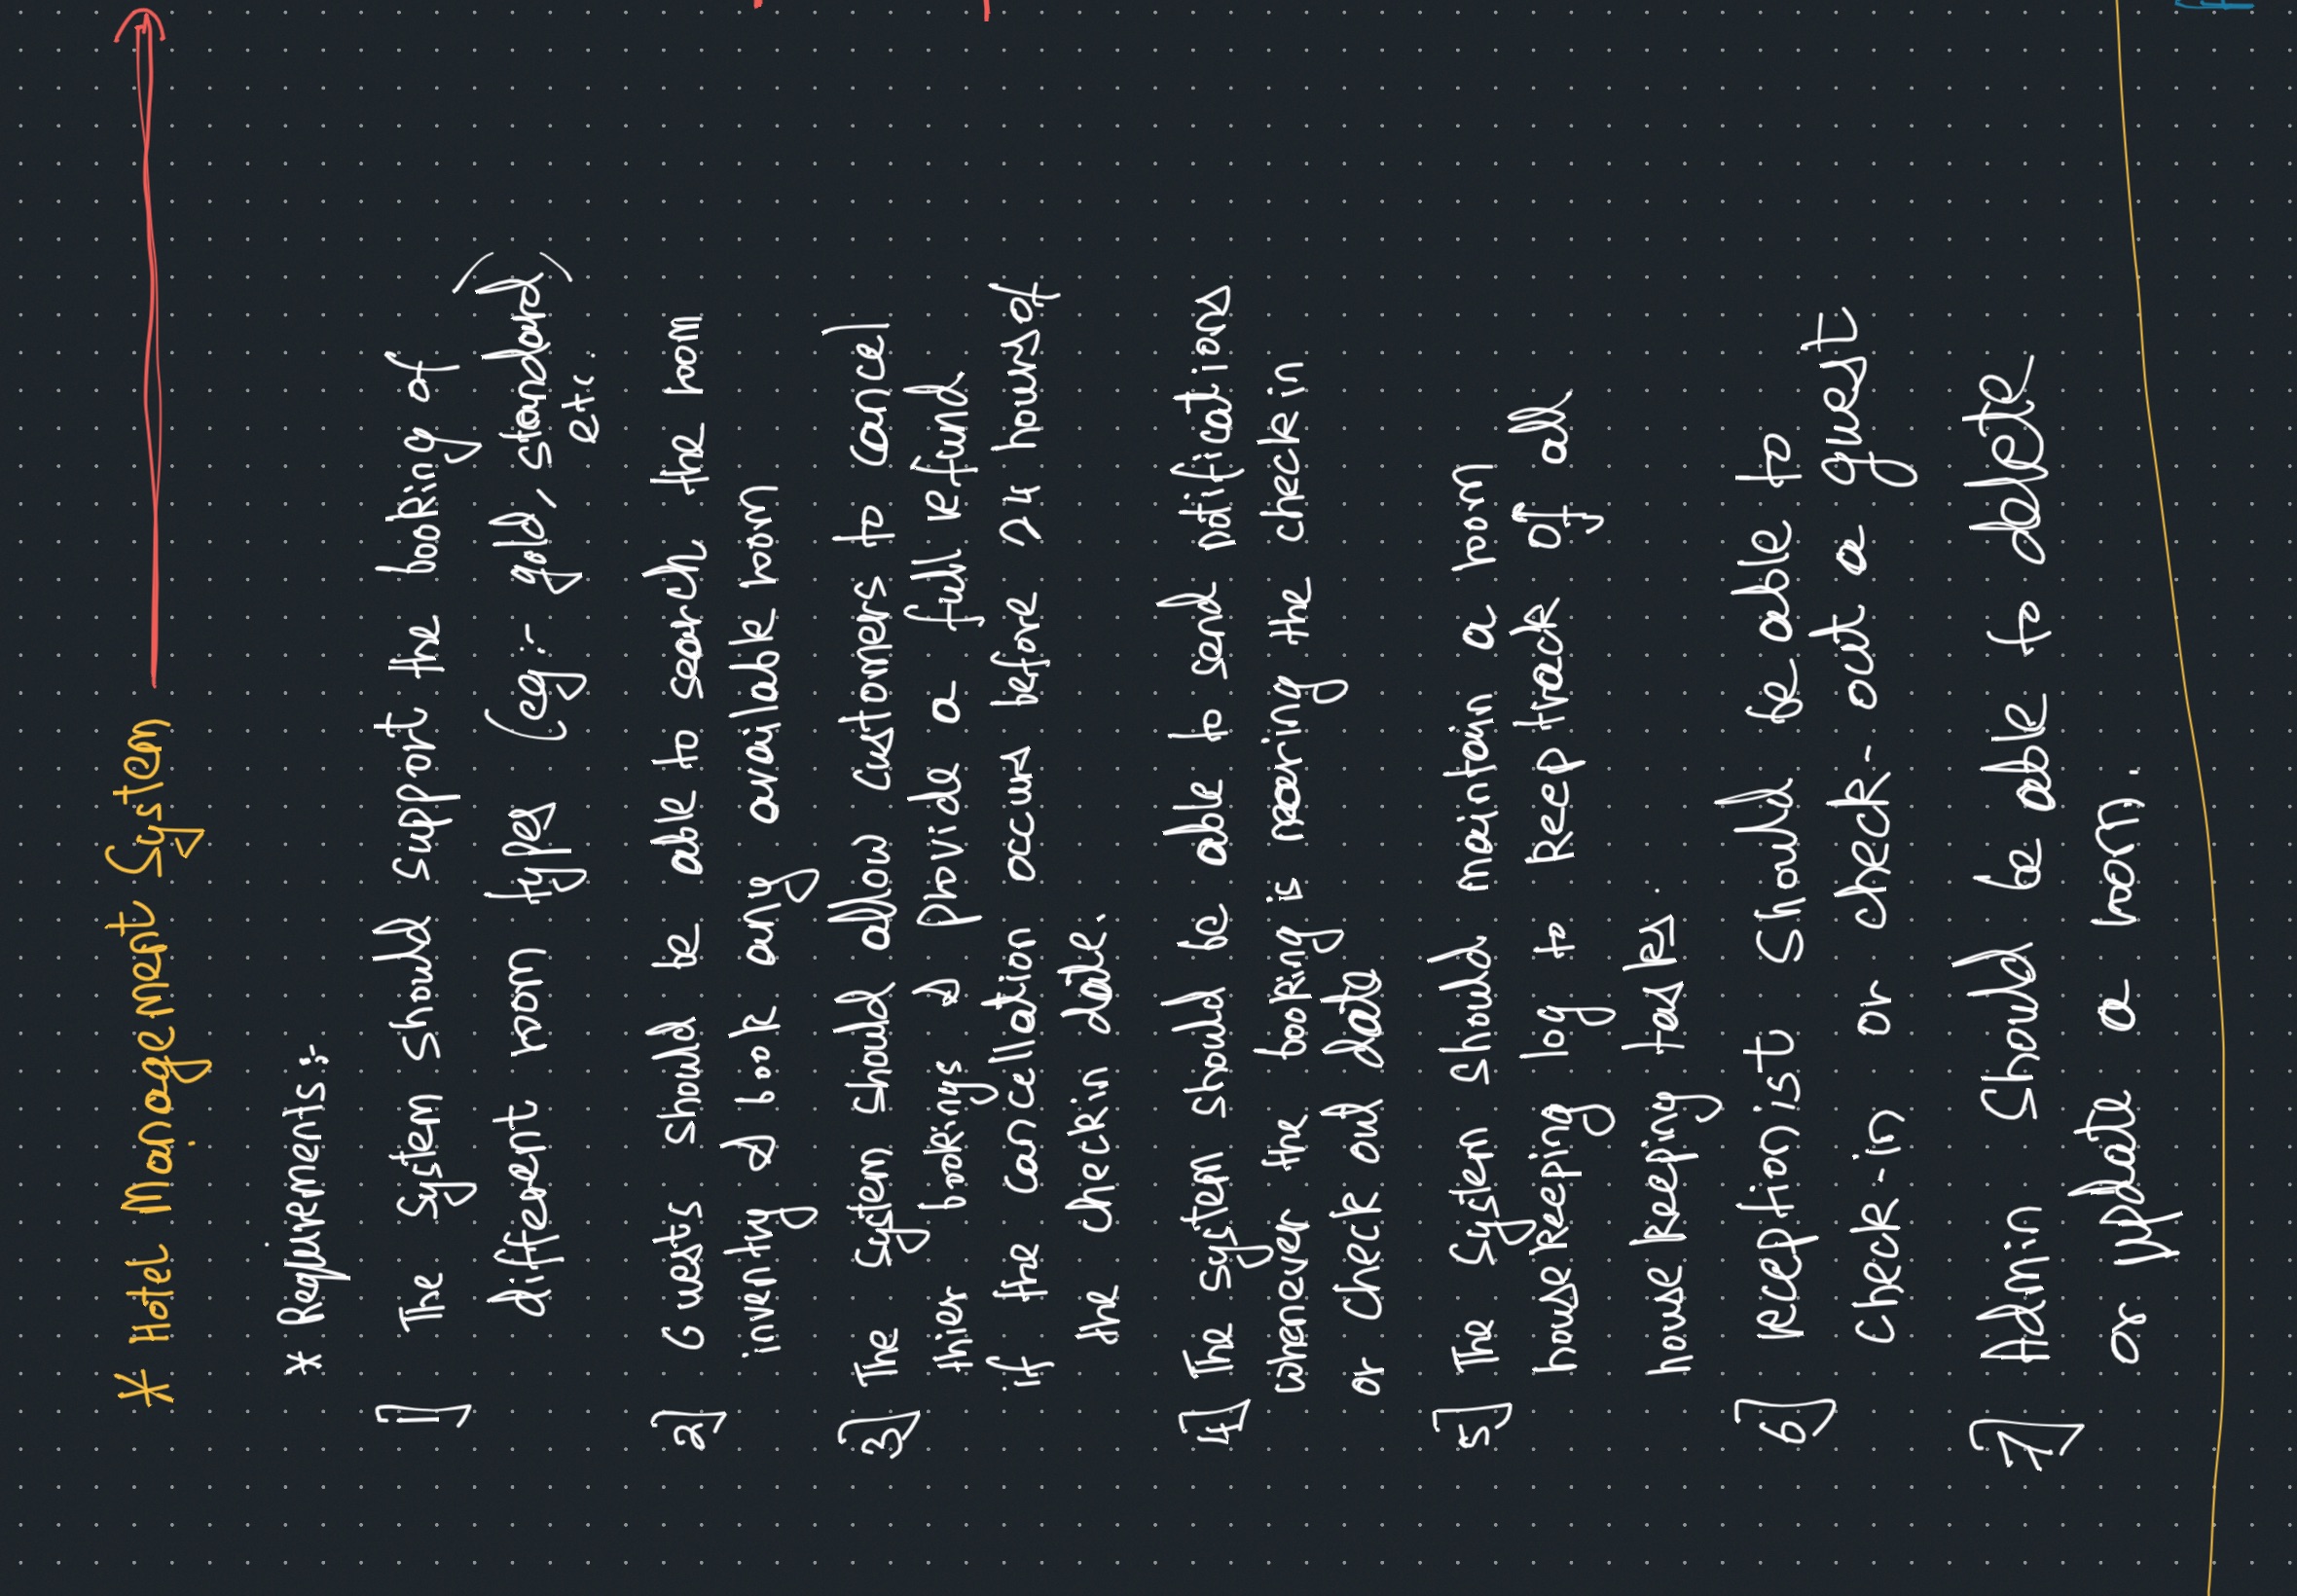 * Hotel Management System
* Requirements :-
1] The System should support the booking of
different room types (eg:- gold, standard)
etc.
2] Guests should be able to search the room
inventry & book any available room
3] The system should allow customers to cancel
thier bookings & provide a full refund
if the cancellation occurs before 24 hours of
the checkin date.
4] The system should be able to send notifications
whenever the booking is nearing the check in
or check out date
5] The System should maintain a room
house keeping log to keep track of all
house keeping tasks.
6] receptionist should be able to
check-in or check-out a guest
7] Admin should be able to delete
or update a room.